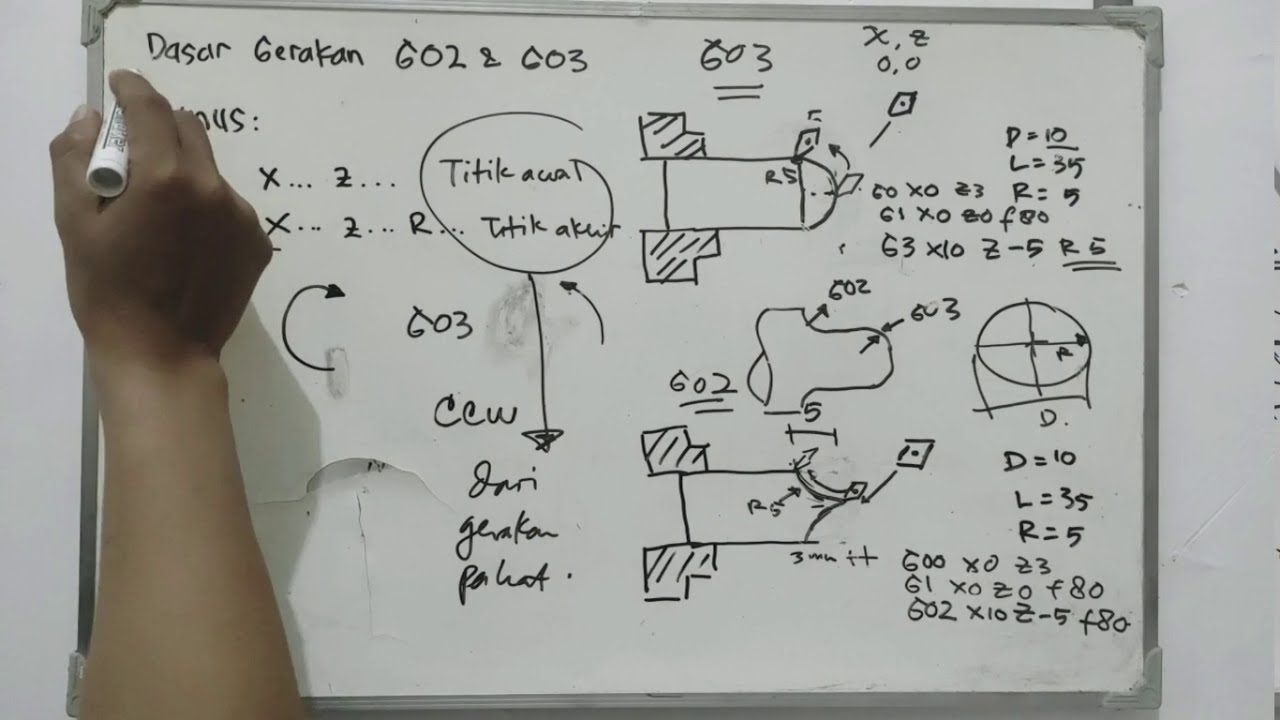 Dasar Gerakan G02 & G03
X... Z...
X... Z... R...
Titik awal
Titik akhir
G03
CCW
dari
gerakan
pahat.
G03
X, Z
0,0
R5
D=10
L=35
R=5
G0 X0 Z3
G1 X0 Z0 f80
G3 X10 Z-5 R5
G02
G03
G02
5
R
D.
R5
3 mm
D=10
L=35
R=5
G00 X0 Z3
G1 X0 Z0 f80
G02 X10 Z-5 f80